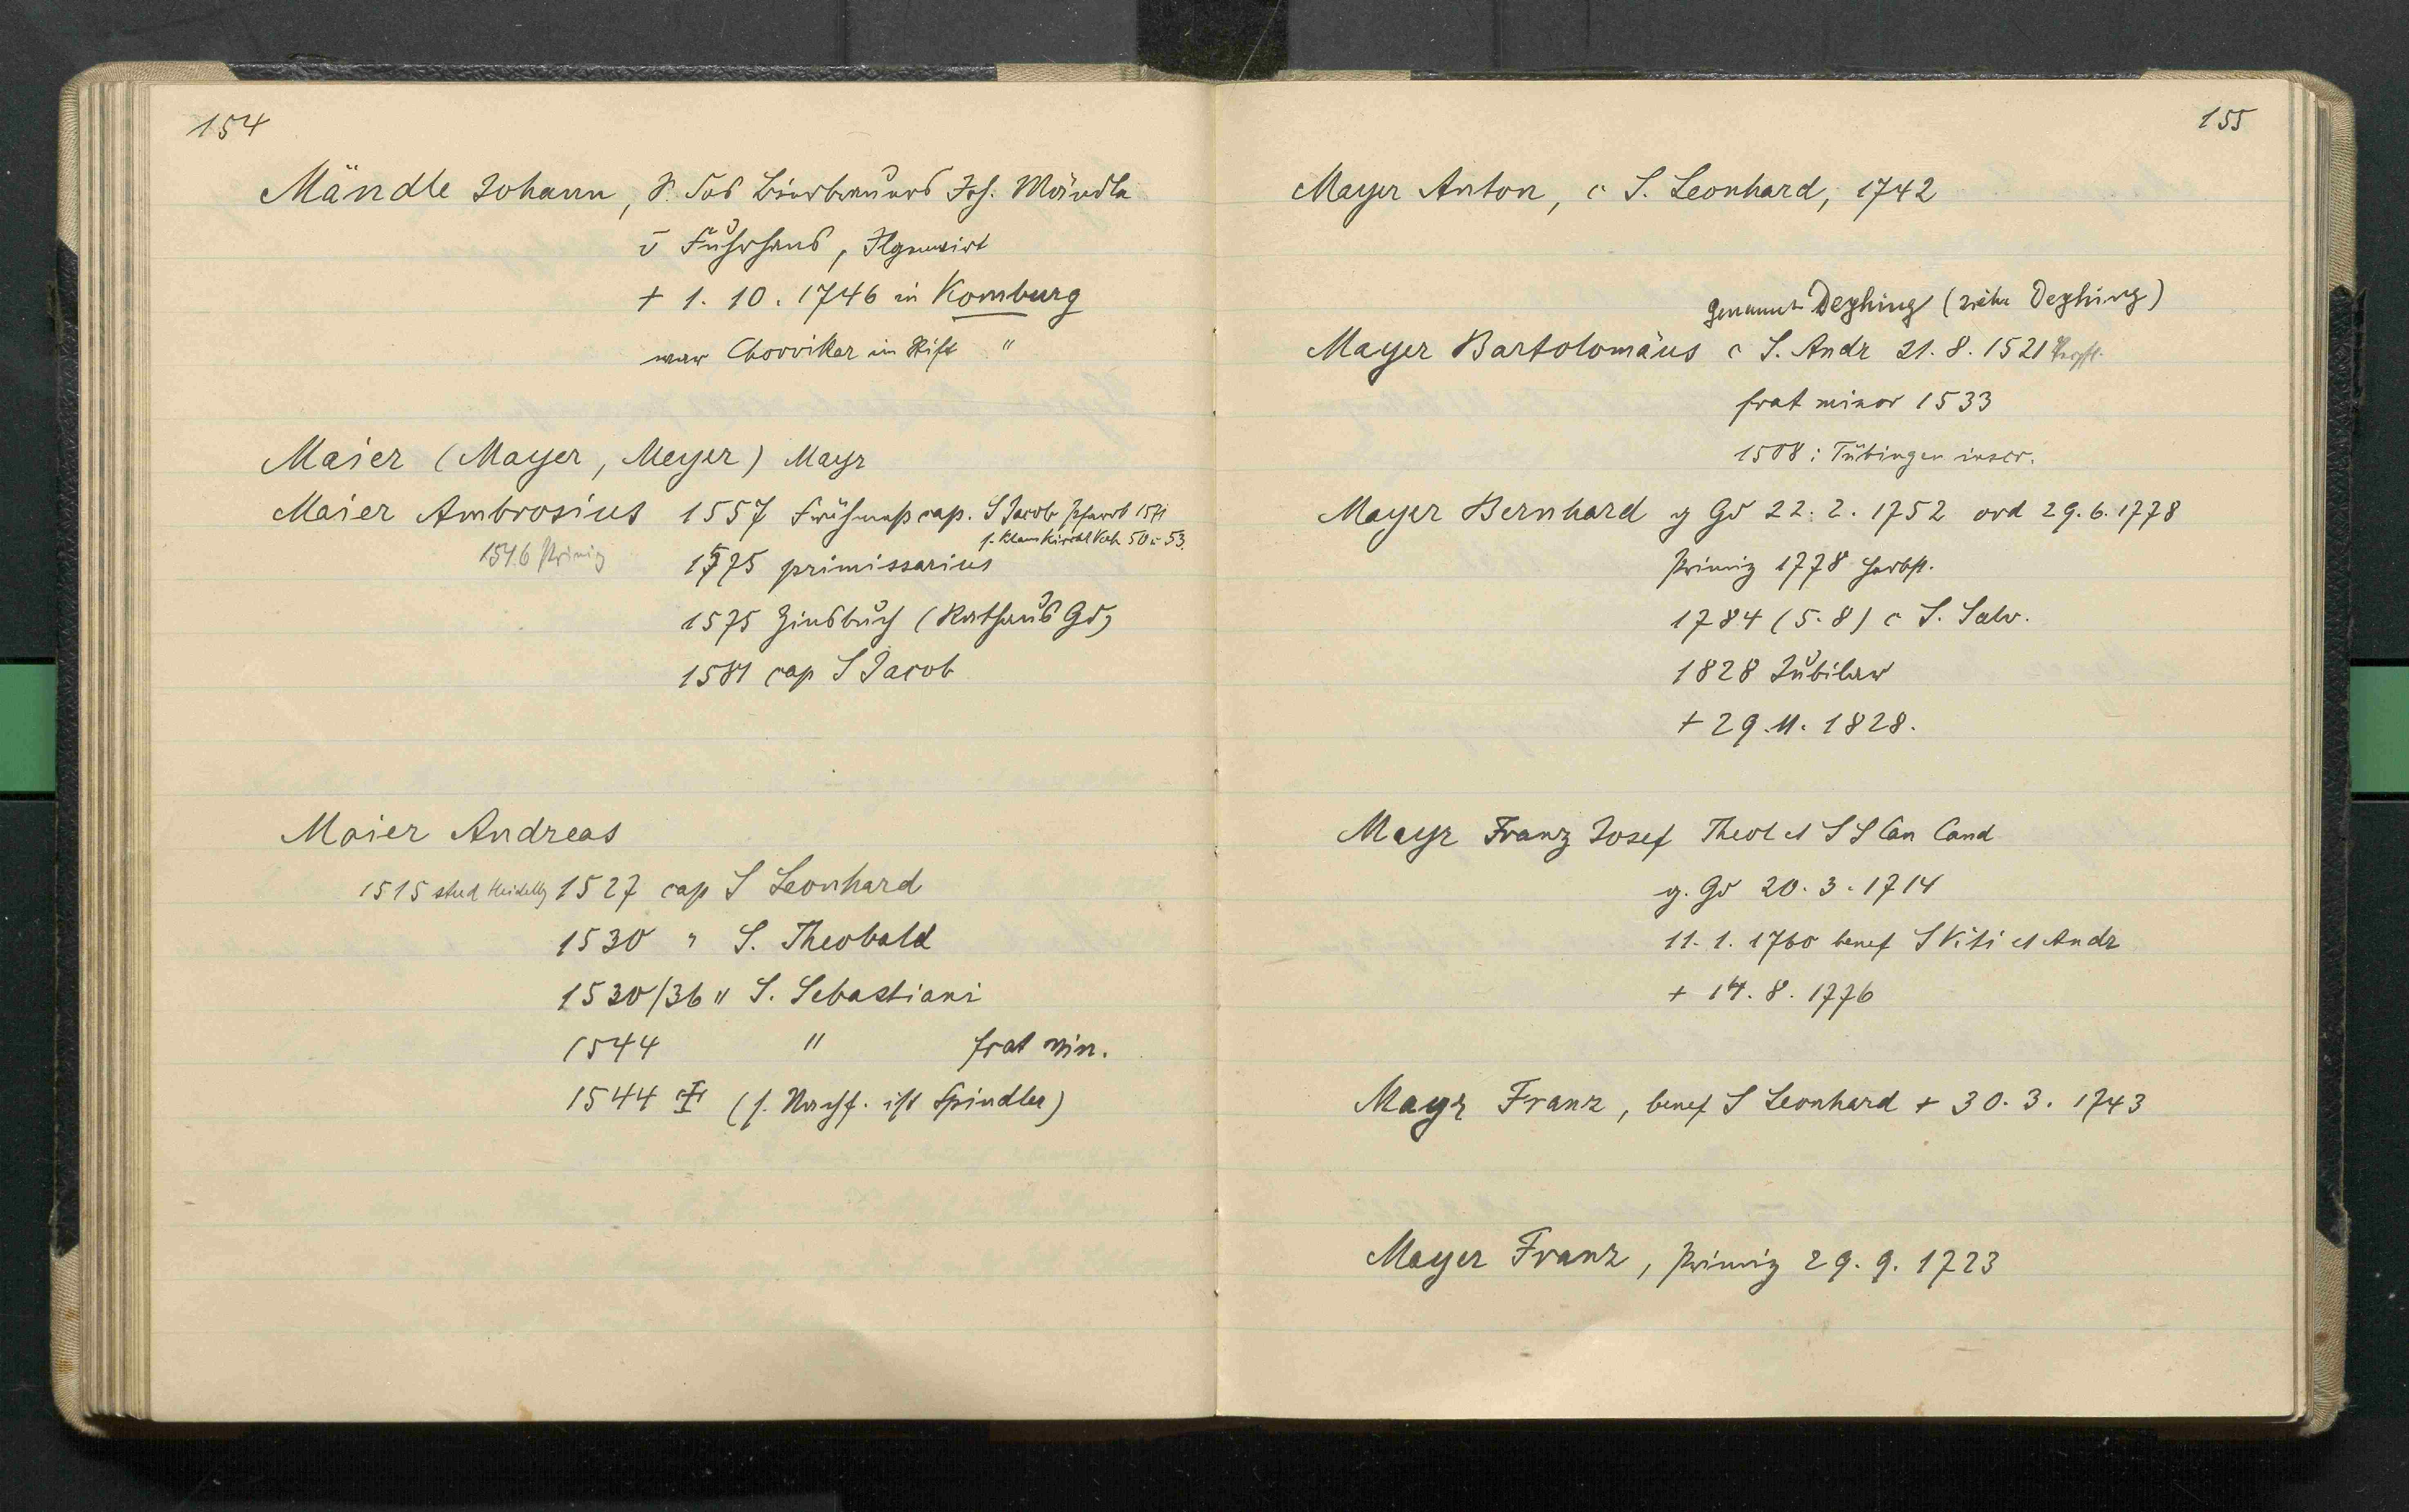 154
Mändle Johann, S. des Bierbrauers Jos. Mändle
v Fuhrhaus, Ilgenwirt
+ 1. 10. 1746 in Komburg
war Chorvikar im Stift "
Maier (Mayer, Meyer) Mayr
Maier Ambrosius 1557 Frühmeßcap. S Jacob
50 u 53.
1546 Primiz
1575 primissarius
1575 Zinsbuch (Rathaus Gd)
1581 cap S Jacob
Maier Andreas
1515 stud Heidelbg 1527 cap S Leonhard
1530 " S. Theobald
1530/36 " S. Sebastiani
1544 " frat min.
1544 + (s. Nachf. ist Spindler)
155
Mayer Anton, c S. Leonhard, 1742
genannt Deghing (siehe Deghing)
Mayer Bartolomäus c S. Andr 21. 8. 1521
frat minor 1533
1508: Tübingen inscr.
Mayer Bernhard g Gd 22. 2. 1752 ord 29. 6. 1778
Primiz 1778 Herbst.
1784 (5. 8) c S. Salv.
1828 Jubilar
+ 29. 11. 1828.
Mayr Franz Josef Theol et S S Can Cand
g. Gd 20. 3. 1714
11. 1. 1760 benef S Viti et Andr
+ 14. 8. 1776
Mayr Franz, benef S Leonhard + 30. 3. 1743
Mayer Franz, Primiz 29. 9. 1723